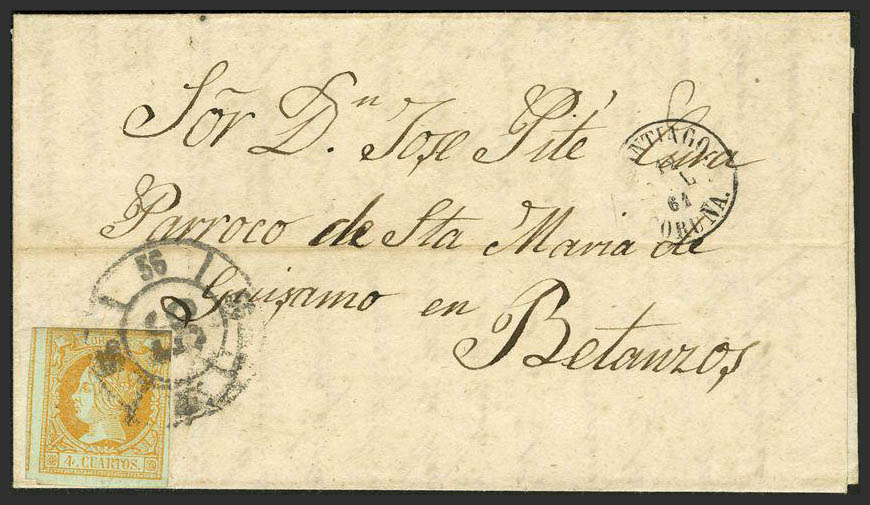 Sõr Dn. Jose Pité Cura
Parroco de Sta Maria de
Guisamo en
Betanzos
NTIAGO
L
61
ORUÑA.
56
4 CUARTOS.